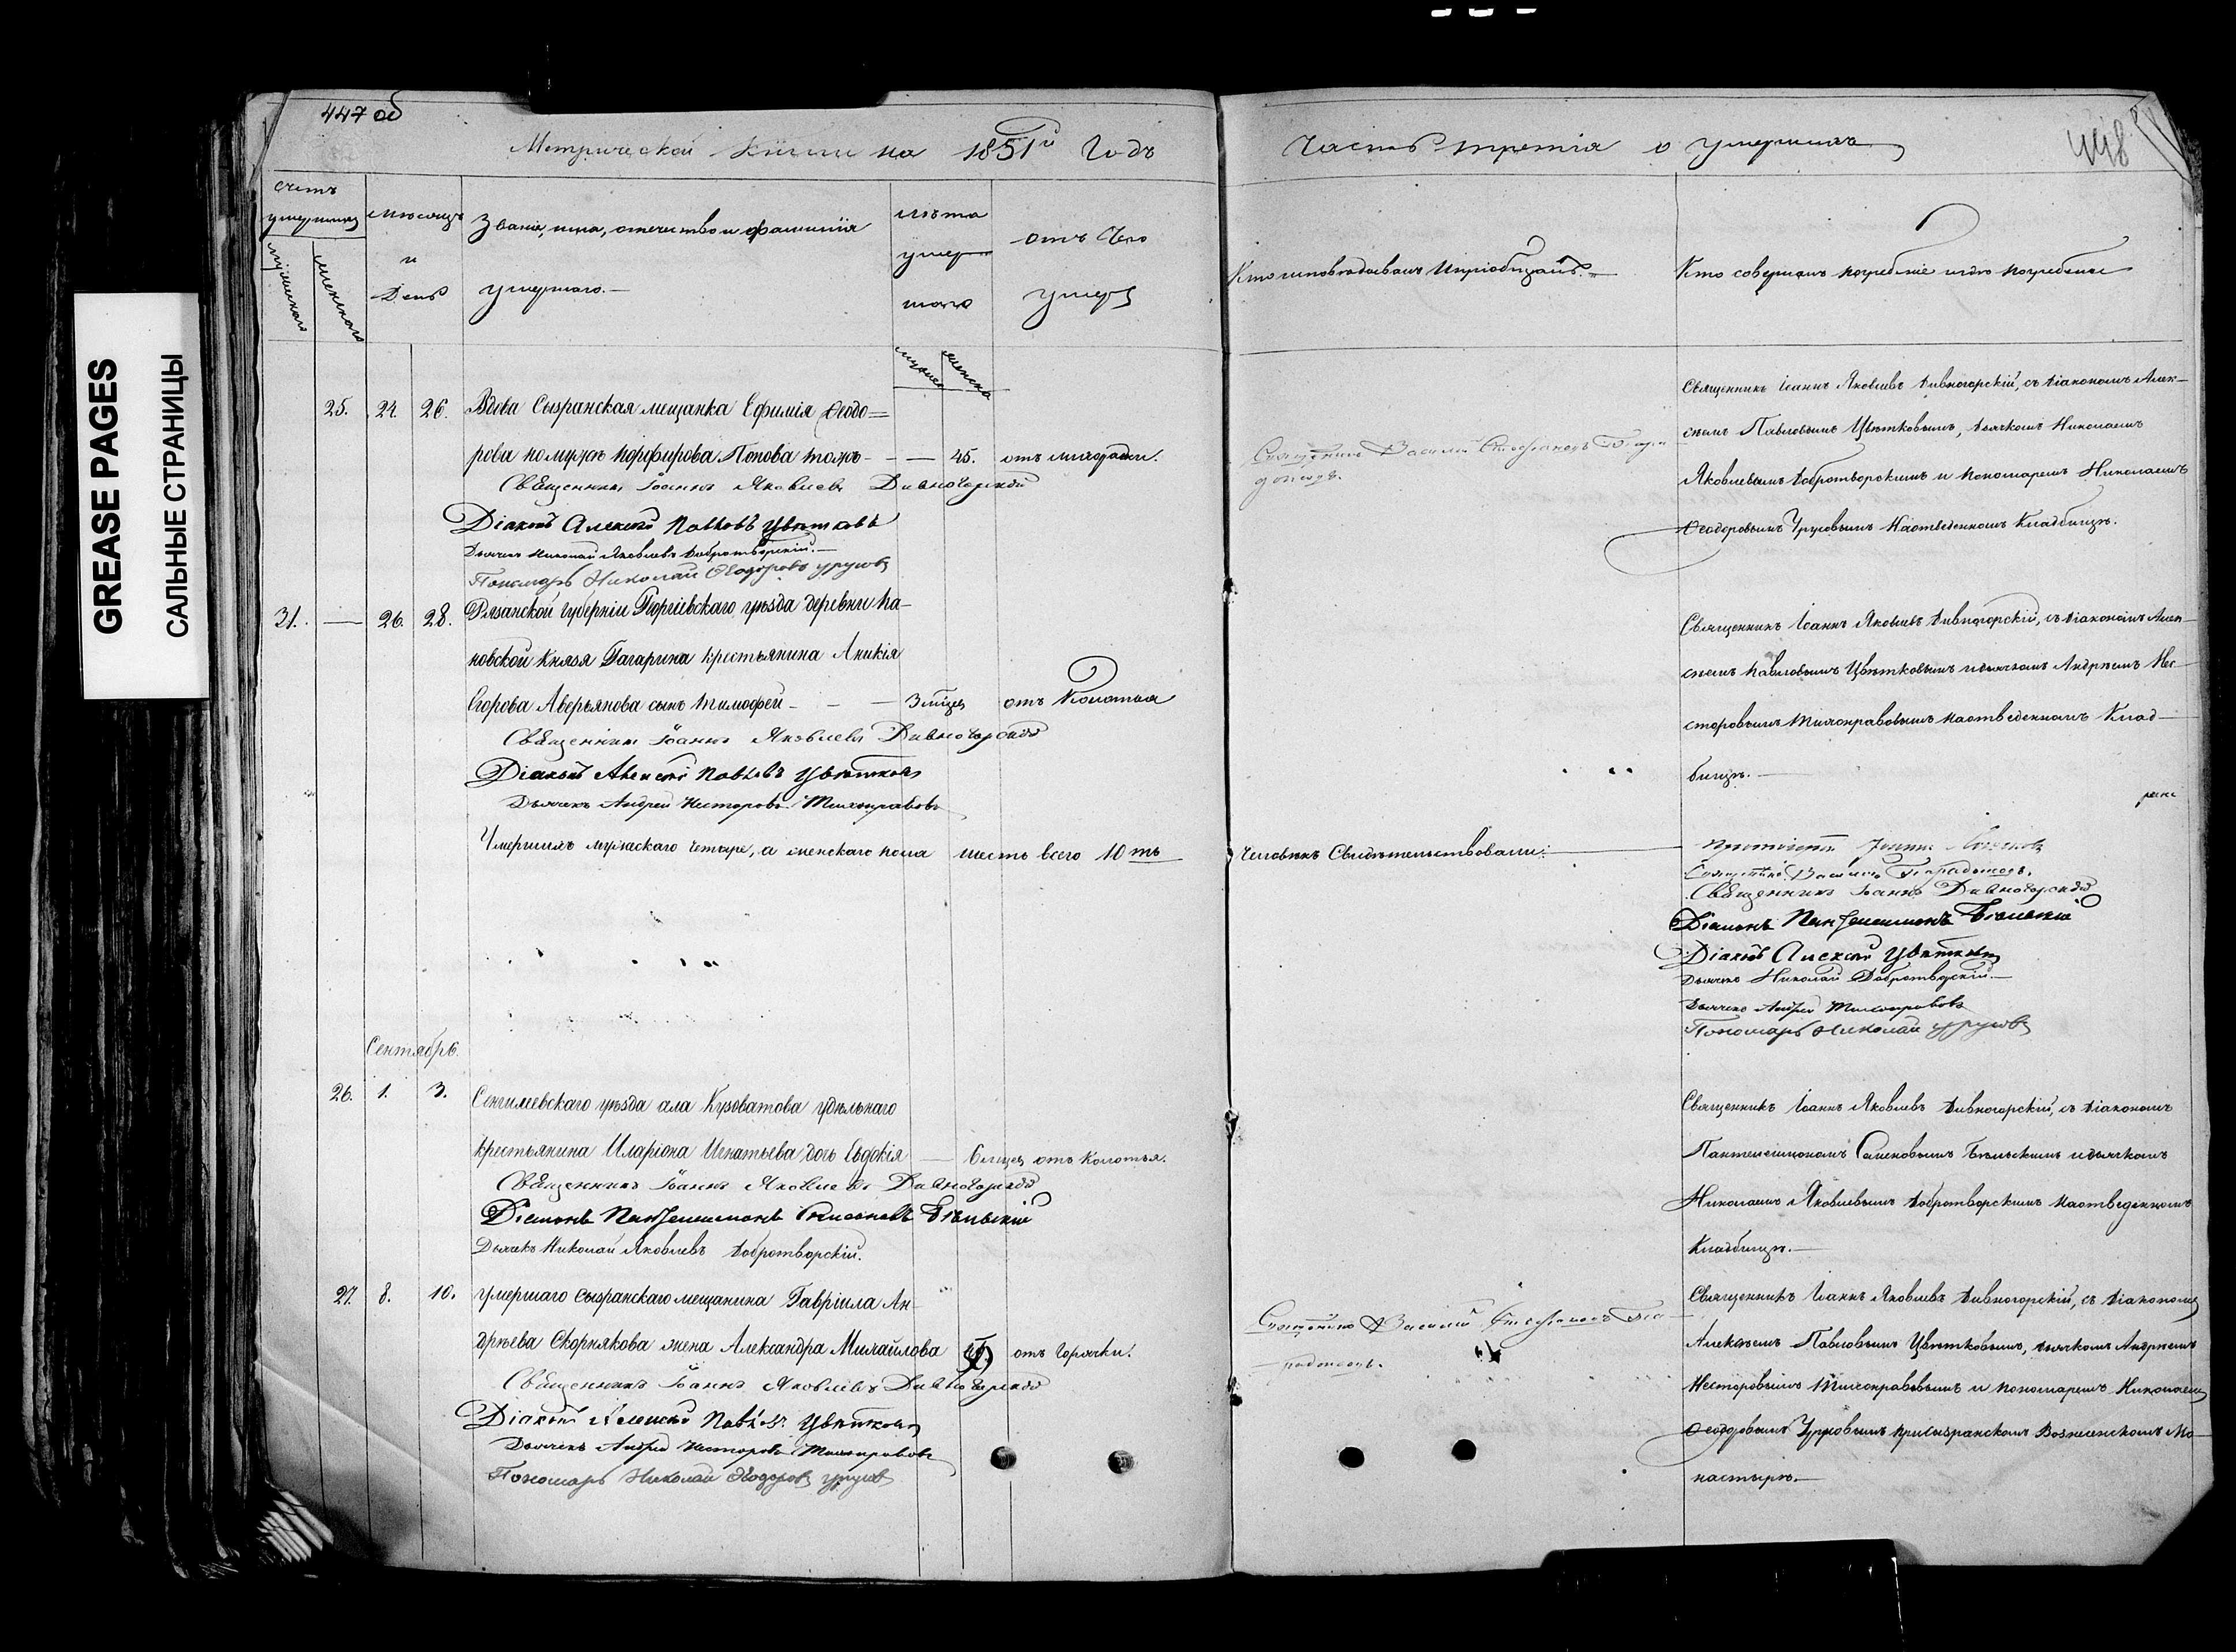 447 об
Метрической книги на 1851й Годъ
Часть третія о умершихъ
448
GREASE PAGES
САЛЬНЫЕ СТРАНИЦЫ
счетъ умершихъ
мужескаго
женскаго
мѣсяцъ
и
День
Званіе, имя, отечество и фамилія
умершаго.
лѣта
умер
шаго
мужеска
женска
отъ Чего
умеръ
Кто исповѣдывалъ и пріобщалъ.
Кто совершалъ погребеніе и гдѣ погребены
25. 24. 26. Вдова Сызранская мещанка Ефимія Ѳеодо=
рова по мужѣ Порфирова Попова тожъ - - — 45. отъ лихорадки.
Священникъ Іоаннъ Яковлевъ Дивногорскій
Діаконъ Алексѣй Павловъ Цвѣтковъ
Дьячекъ Николай Яковлевъ Добротворскій.—
Пономарь Николай Ѳеодоровъ Урусовъ
Священникъ Василій Стефановъ
Священникъ Іоаннъ Яковлевъ Дивногорскій, съ діакономъ Алек-
сѣемъ Павловымъ Цвѣтковымъ, дьячкомъ Николаемъ
Яковлевымъ Добротворскимъ и пономаремъ Николаемъ
Ѳеодоровымъ Урусовымъ На отведенномъ Кладбищѣ.
31. — 26. 28. Рязанской губерніи Георгіевскаго уѣзда деревни Па-
новской Князя Гагарина крестьянина Аникія
Егорова Аверьянова сынъ Тимофей - - — 3 мѣсяц отъ Колотья
Священникъ Іоаннъ Яковлевъ Дивногорскій
Діаконъ Алексѣй Павловъ Цвѣтковъ
Дьячекъ Андрей Несторовъ Тихонравовъ
Священникъ Іоаннъ Яковлевъ Дивногорскій, съ діакономъ Алек-
сѣемъ Павловымъ Цвѣтковымъ и дьячкомъ Андреемъ Нес-
торовымъ Тихонравовымъ на отведенномъ Клад-
бищѣ.—
Умершихъ мужескаго четыре, а женскаго пола шесть всего 10 ть
Человѣкъ Свидѣтельствовали:
Протоіерей Іоаннъ
Священникъ Василій
Священникъ Іоаннъ Дивногорскій
Діаконъ Пантелеимонъ Бѣльскій
Діаконъ Алексѣй Цвѣтковъ
Дьячекъ Николай Добротворскій.—
Дьячекъ Андрей Тихонравовъ
Пономарь Николай Урусовъ
Сентябрь.
26. 1. 3. Сенгилеевскаго уѣзда села Кузоватова удѣльнаго
крестьянина Иларіона Игнатьева дочь Евдокія — 6 мѣсяц отъ Колотья.
Священникъ Іоаннъ Яковлевъ Дивногорскій
Діаконъ Пантелеимонъ Семеновъ Бѣльскій
Дьячекъ Николай Яковлевъ Добротворскій.
Священникъ Іоаннъ Яковлевъ Дивногорскій, съ діакономъ
Пантелеимономъ Семеновымъ Бѣльскимъ и дьячкомъ
Николаемъ Яковлевымъ Добротворскимъ на отведенномъ
Кладбищѣ.—
27. 8. 10. Умершаго сызранскаго мещанина Гавріила Ан-
дрѣева Скорнякова жена Александра Михайлова отъ Горячки.
Священникъ Іоаннъ Яковлевъ Дивногорскій
Діаконъ Алексѣй Павловъ Цвѣтковъ
Дьячекъ Андрей Несторовъ Тихонравовъ
Пономарь Николай Ѳеодоровъ Урусовъ
Священникъ Василій Стефановъ
Священникъ Іоаннъ Яковлевъ Дивногорскій, съ діакономъ
Алексѣемъ Павловымъ Цвѣтковымъ, дьячкомъ Андреемъ
Несторовымъ Тихонравовымъ и пономаремъ Николаемъ
Ѳеодоровымъ Урусовымъ при Сызранскомъ Вознесенскомъ Мо-
настырѣ.—